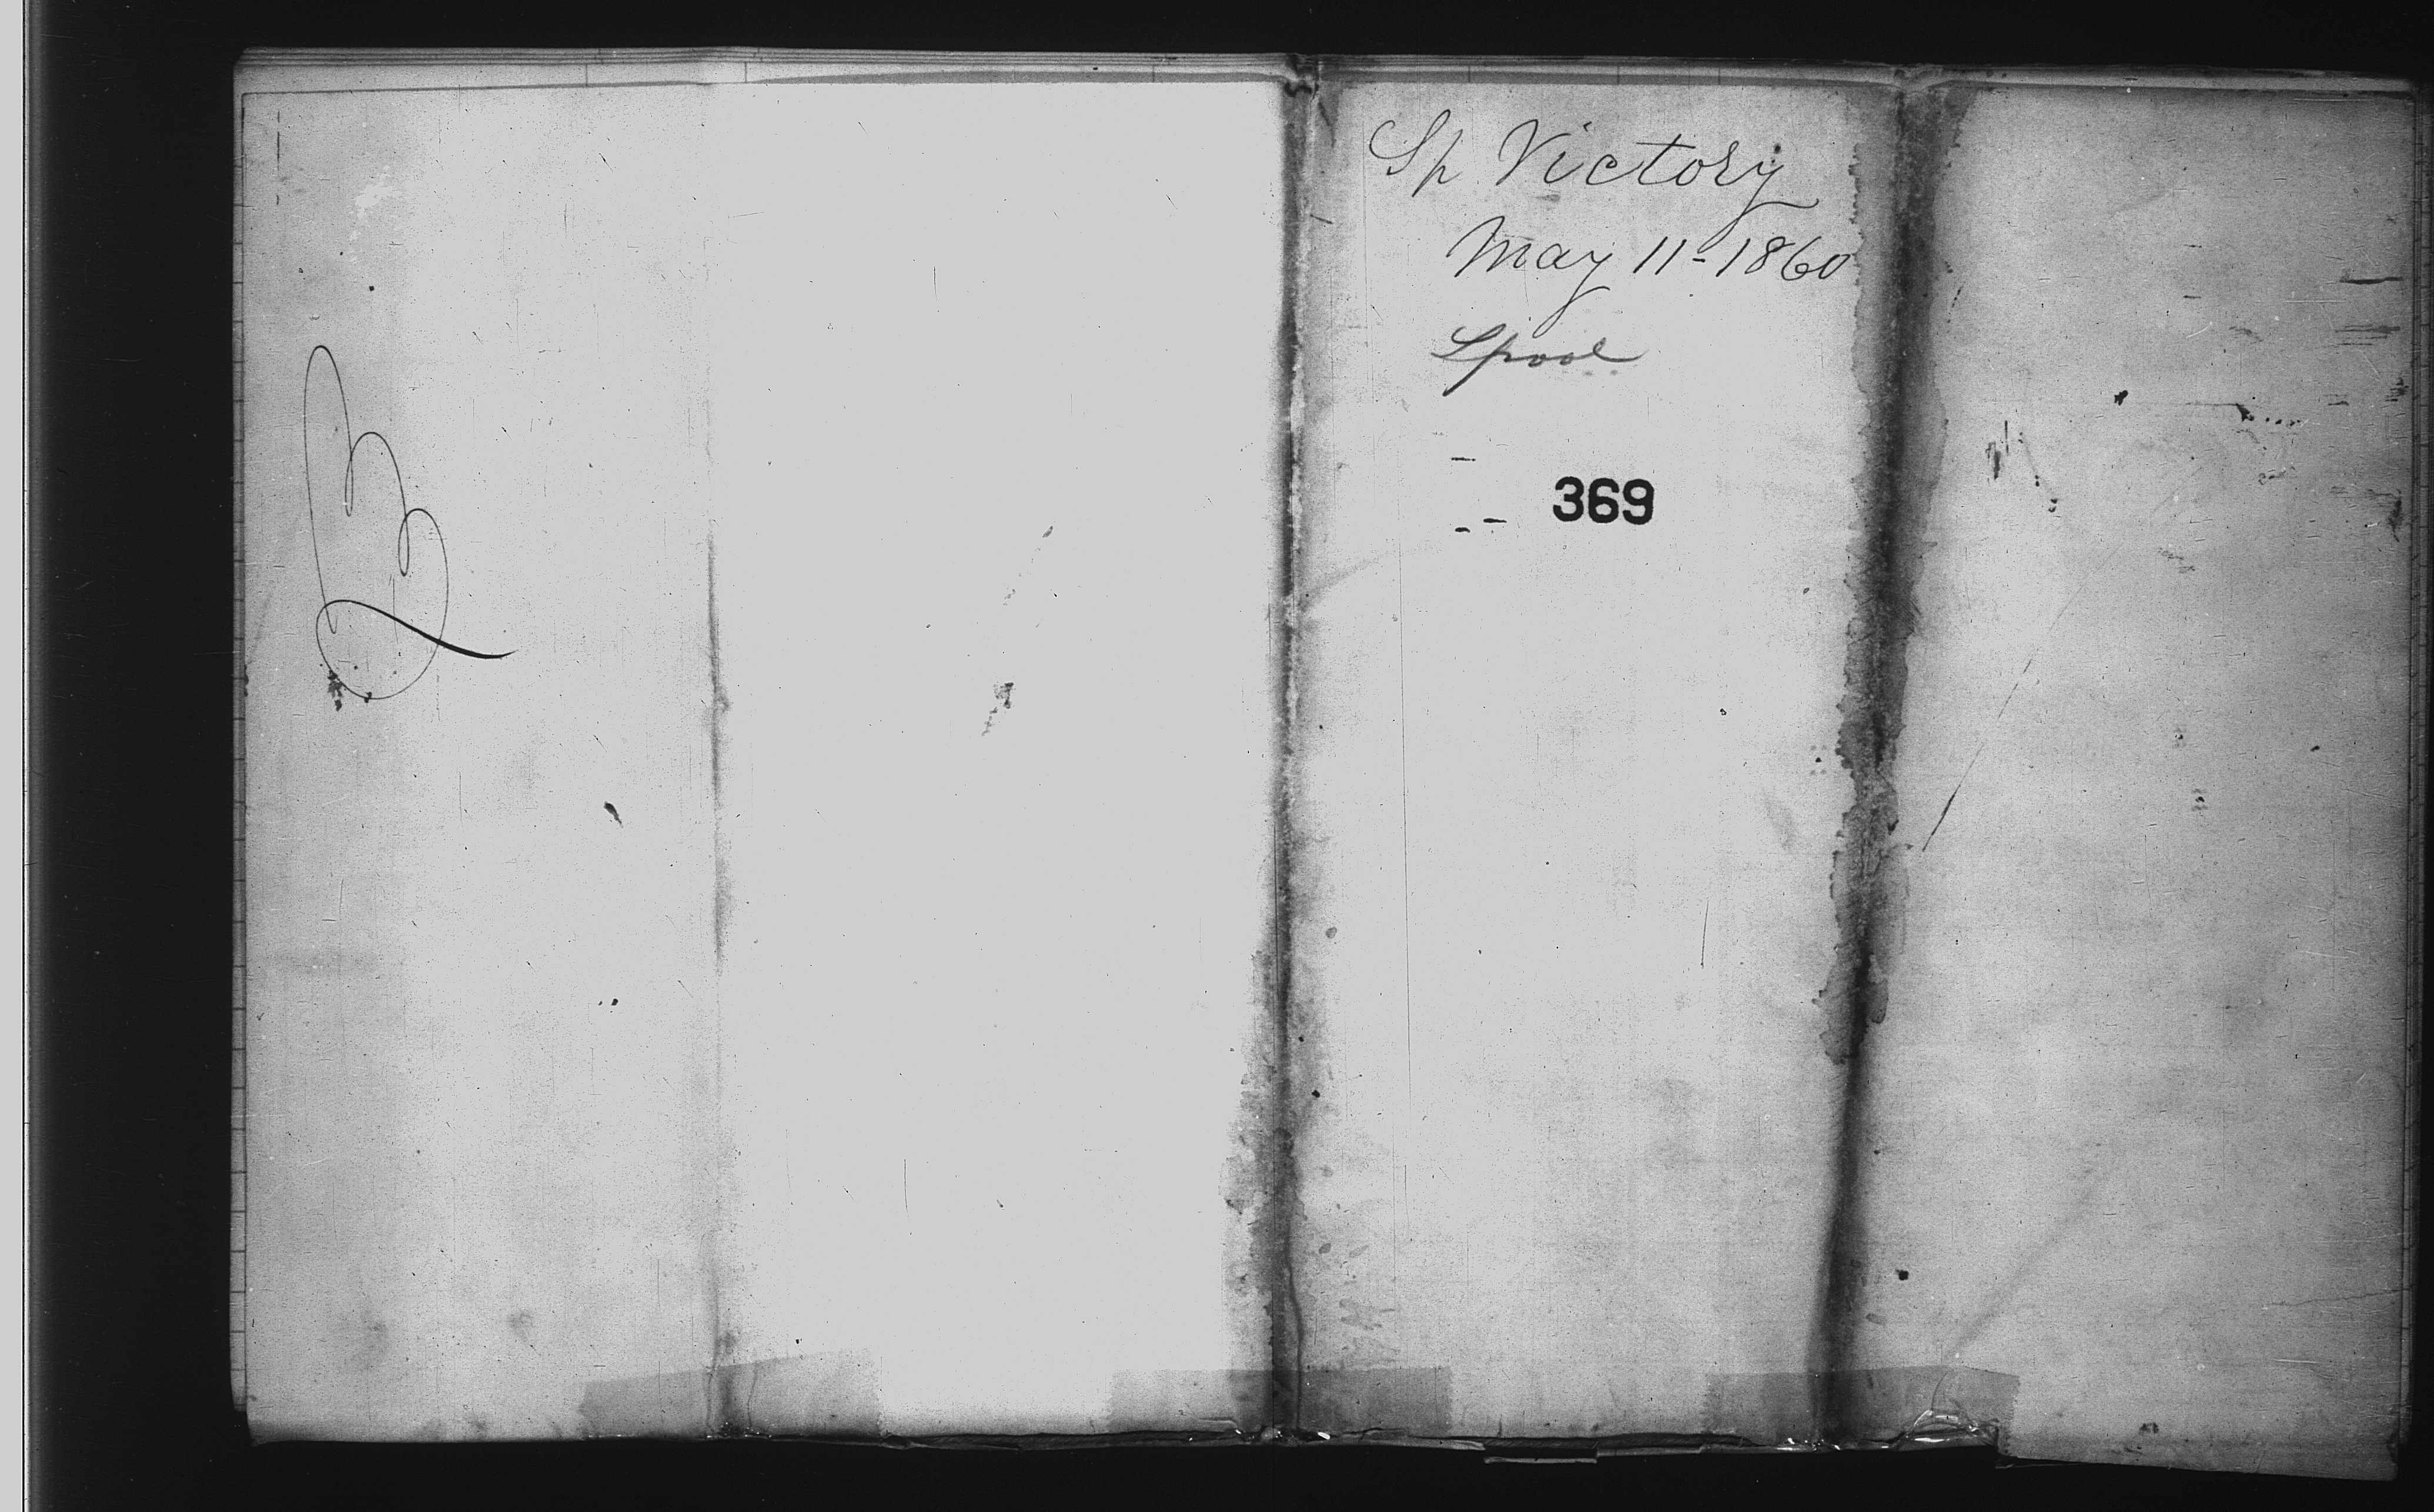 Sp Victory
May 11-1860
Lpool
369